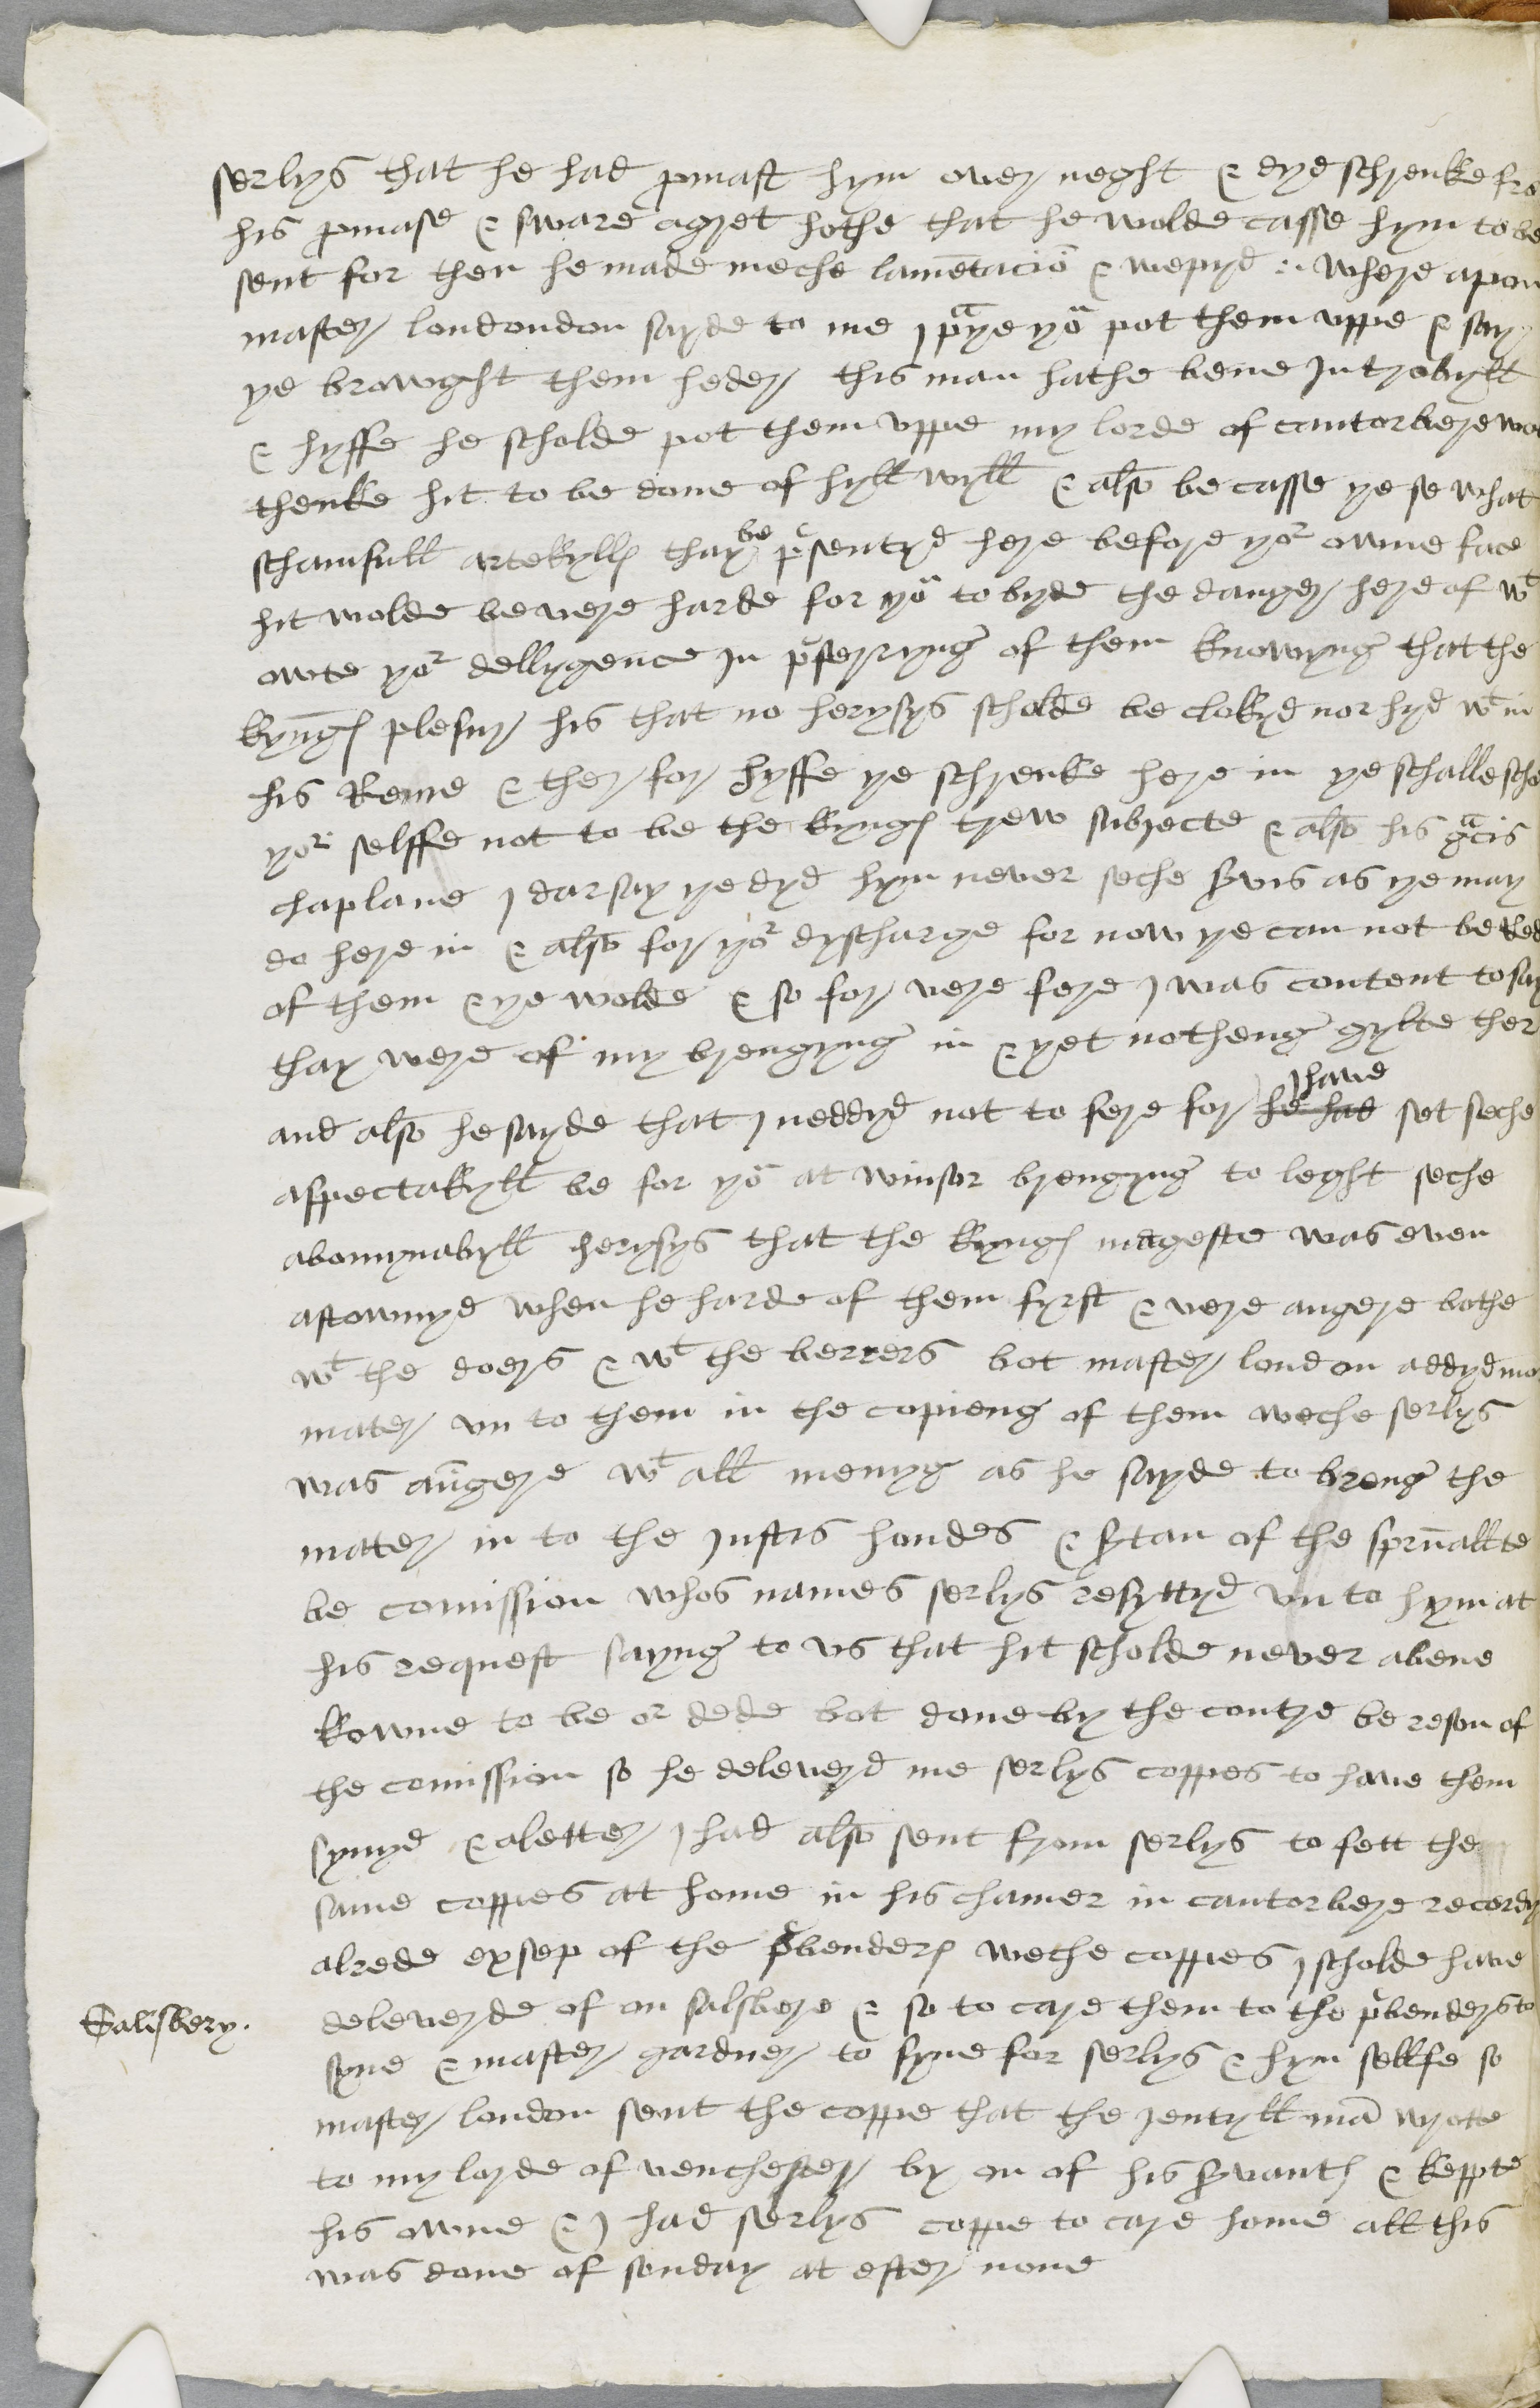 serlys that he had pmast hym over neght & dyd schrenke fro
his pmase & sware agret hothe that he wolde casse hym to be
sent for then he made meche lamētaciō & wepyd :~ where apon
master londondon sayde to me I pᵃye yoᵘ pot them uppe & say
ye browght them heder this man hathe bene In trobyll
& hyffe he scholde pot them uppe my lorde of cantorbere wo
thenke hit to be done of hyll wyll & also be casse ye se what
schamfull artekylls thay be p̄sentyd here before yoʳ owne face
hit wolde be vere harde for yoᵘ to byde the danger here of wᵗ
owte yoʳ dellygence in p̄ferryng of them knowyng that the
kyngs plesur his that no herysys scholde be clokyd nor hyd wᵗ in
his Reme & ther for hyffe ye schrenke here in ye schalle sche
yoʳ selffe not to be the kyngs trew subjecte & also his gᵃcis
chaplane I dar say ye dyd hym never seche s̄vis as ye may
do here in & also for yoʳ dyscharge for now ye can not be red
of them & ye wolde & so for vere fere I was content to say
thay were of my brengyng in & yet notheng gylte ther
and also he sayde that I neddyd not to fere for he had I have set seche
aspectakyll be for yoᵘ at winsor brengyng to leght seche
abomynabyll herysys that the kyngs mageste was even
astownyd when he harde of them fyrst & vere angere bothe
wᵗ the doers & wᵗ the berrers bot master london addyd mo
mater un to them in the copieng of them weche serlys
was angere wᵗ all menyg as he sayde to breng the
mater in to the Justis handes & s̄tan of the sprūallte
be comission whos names serlys resyttyd un to hym at
his request sayng to us that hit scholde never abene
kowne to be oʳ dede bot done by the contre be reson of
the comission so he deleveryd me serlys coppes to have them
synyd & a letter I had also sent from serlys to fett the
same coppes at home in his chamer in cantorbere recordy
alrede exsep of the p̄benders weche coppies I scholde have
Salisbery.
deleverde of on salsbere & so to care them to the p̄benders to
syne & master gardner to syne for serlys & hym sellfe so
master london sent the coppe that the jentyll mā wrotte
to my lorde of venchester by on of his s̄vants & keppte
his owne & I had serlys coppe to care home all this
was done of sonday at efter none